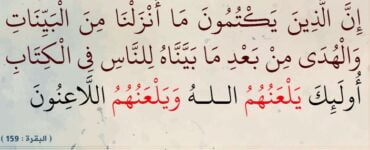 إِنَّ الَّذِينَ يَكْتُمُونَ مَا أَنْزَلْنَا مِنَ الْبَيِّنَاتِ
وَالْهُدَى مِنْ بَعْدِ مَا بَيَّنَّاهُ لِلنَّاسِ فِي الْكِتَابِ
أُولَئِكَ يَلْعَنُهُمُ اللهُ وَيَلْعَنُهُمُ اللَّاعِنُونَ
( البقرة : 159 )